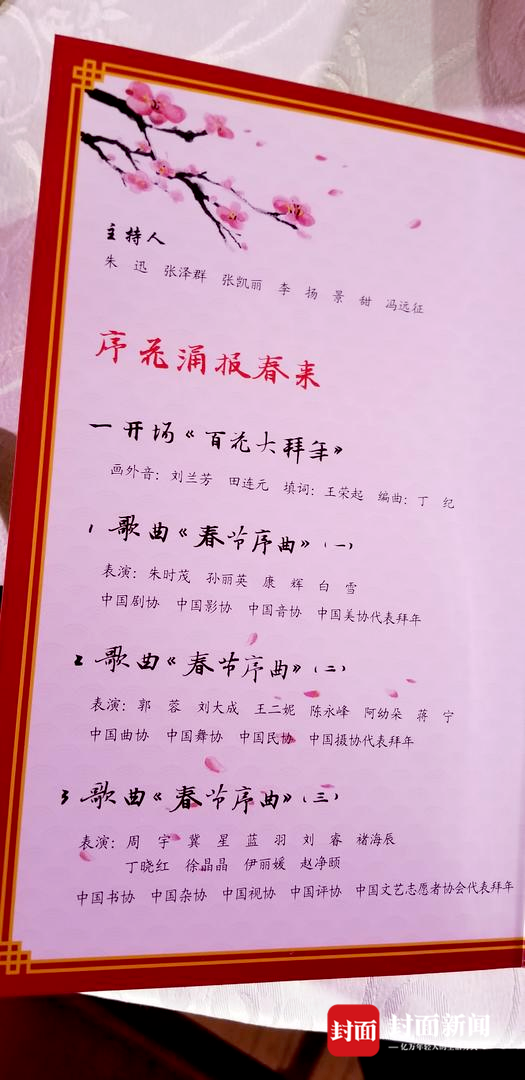 主持人
朱 迅 张泽群 张凯丽 李 扬 景 甜 冯远征
序 花涌报春来
一 开场《百花大拜年》
画外音：刘兰芳 田连元 填词：王荣起 编曲：丁 纪
1 歌曲《春节序曲》（一）
表演：朱时茂 孙丽英 康 辉 白 雪
中国剧协 中国影协 中国音协 中国美协代表拜年
2 歌曲《春节序曲》（二）
表演：郭 蓉 刘大成 王二妮 陈永峰 阿幼朵 蒋 宁
中国曲协 中国舞协 中国民协 中国摄协代表拜年
3 歌曲《春节序曲》（三）
表演：周 宇 冀 星 蓝 羽 刘 睿 褚海辰
丁晓红 徐晶晶 伊丽媛 赵净颐
中国书协 中国杂协 中国视协 中国评协 中国文艺志愿者协会代表拜年
封面 封面新闻
亿万年轻人的生活方式